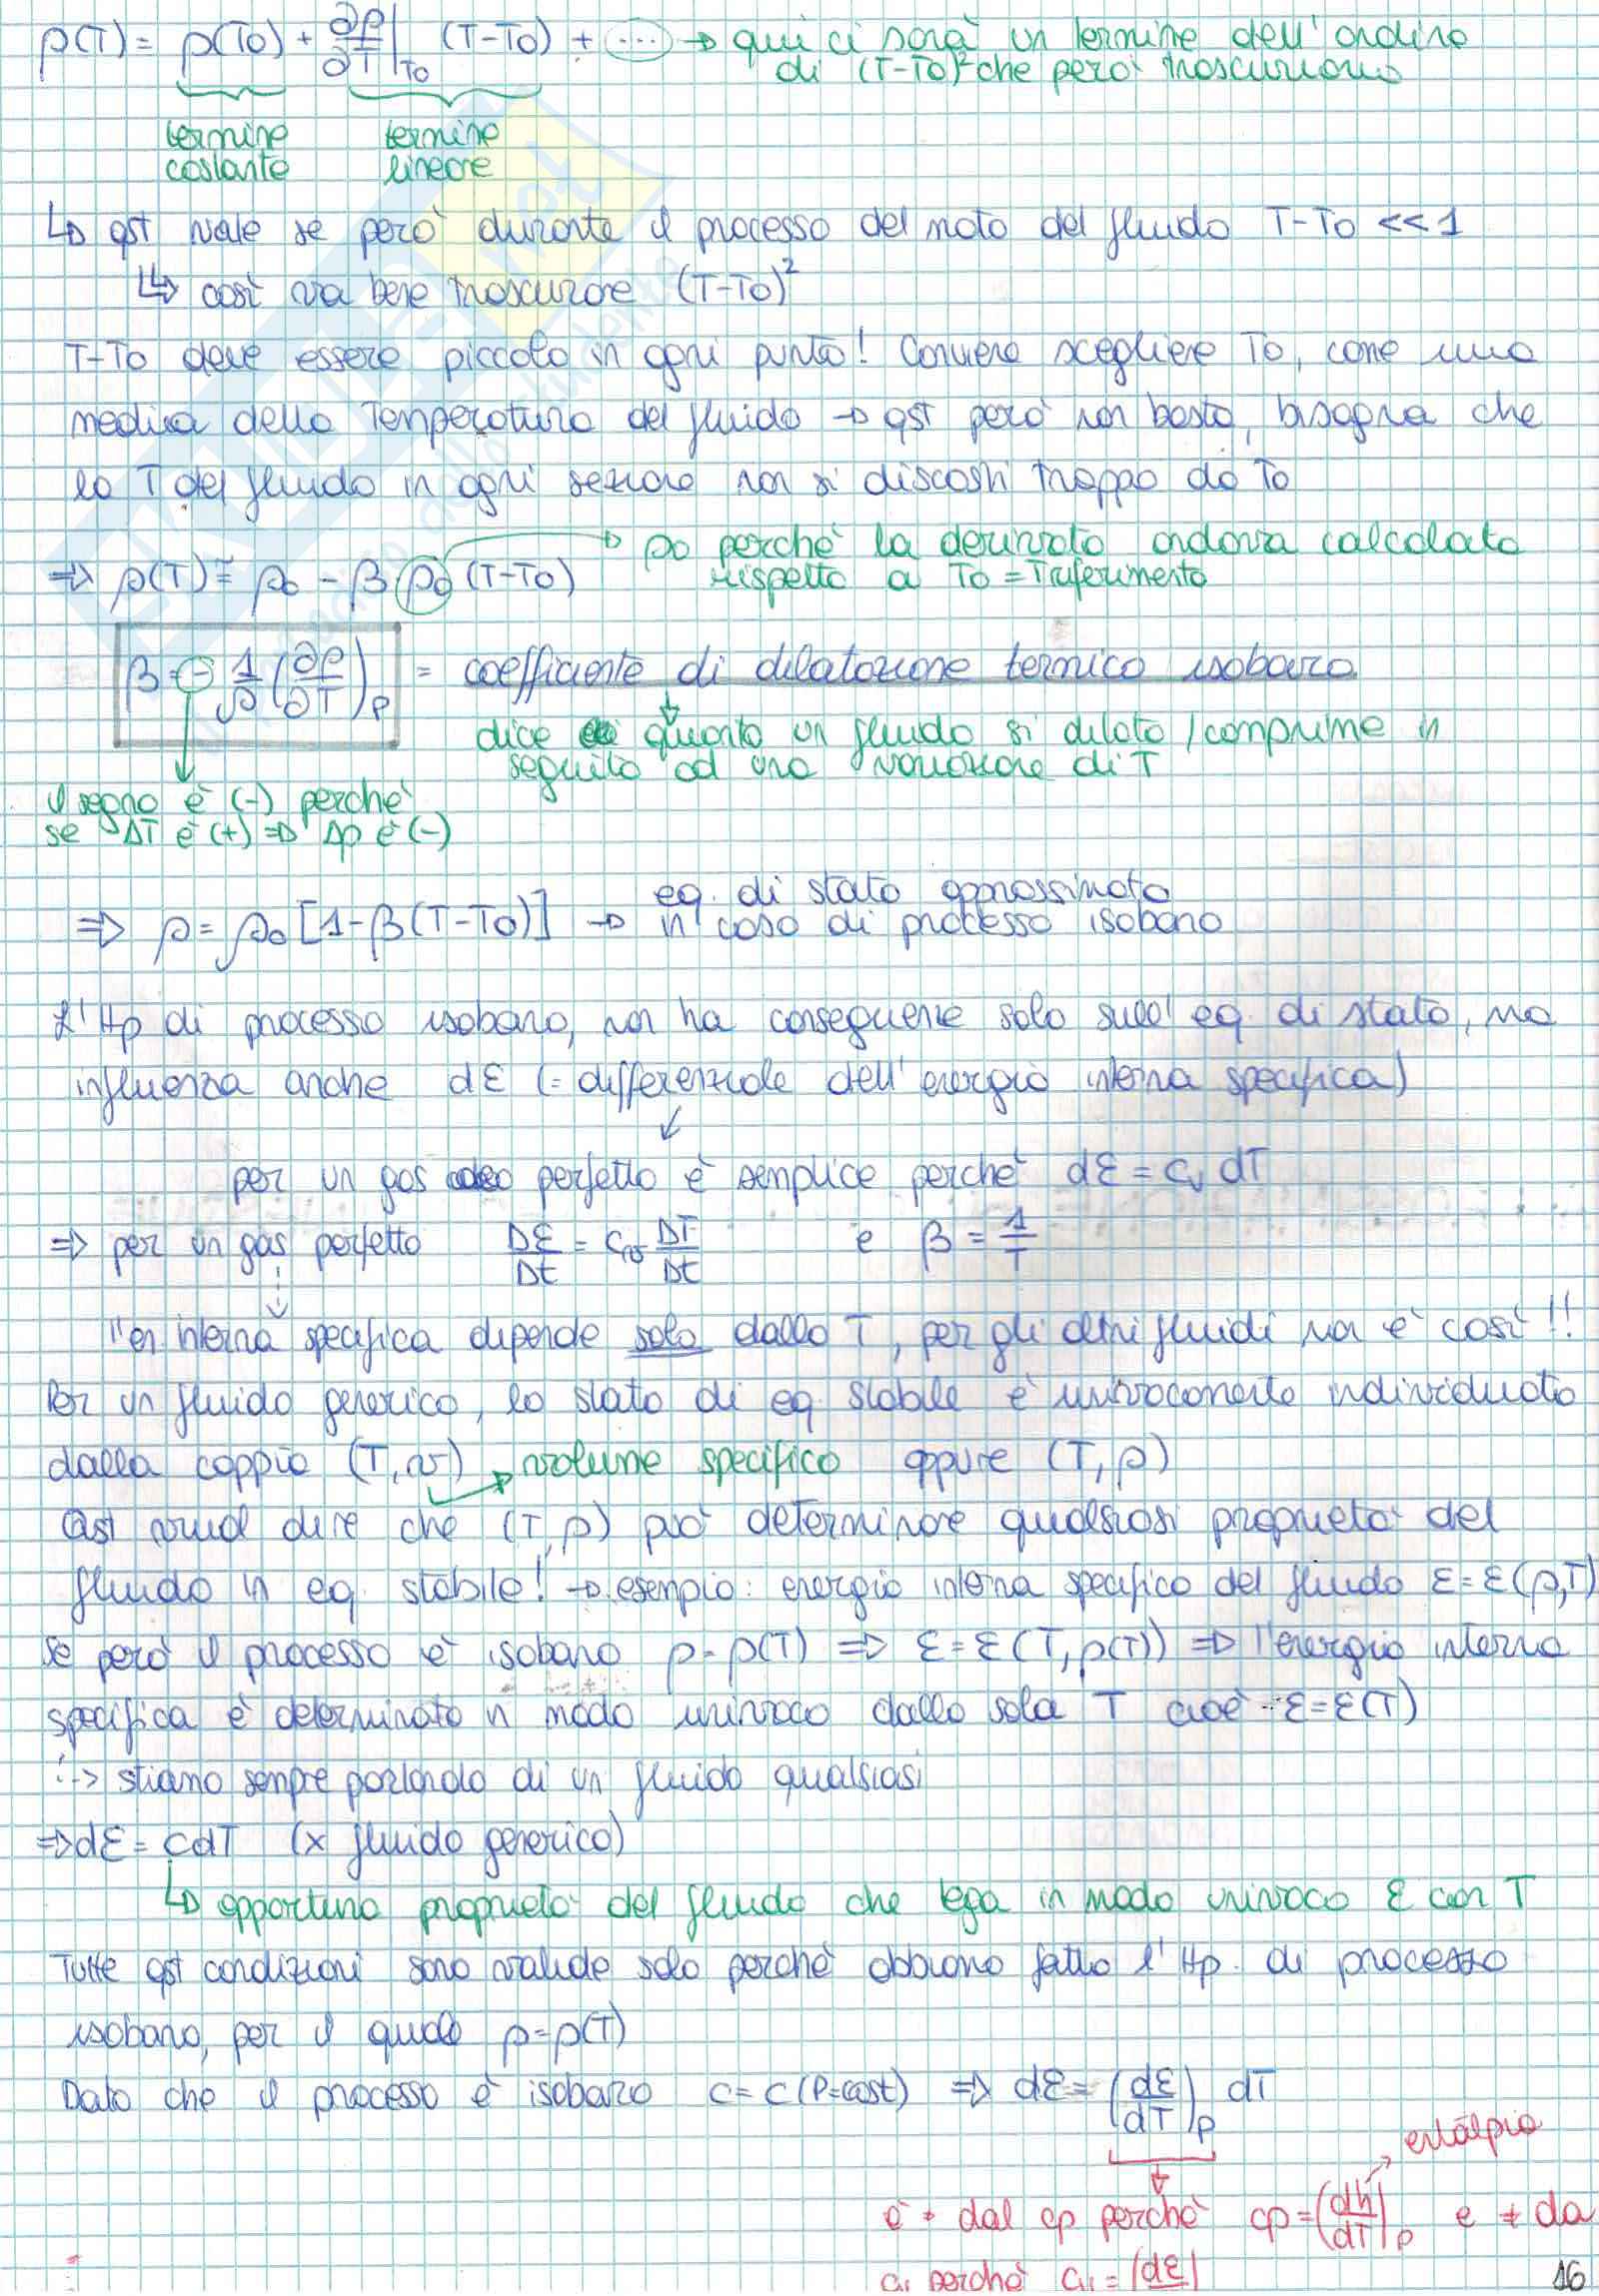 ρ(T) = ρ(T0) + ∂ρ/∂T|T0 (T-T0) + (...) → qui ci sarà un termine dell'ordine
di (T-T0)² che però trascuriamo
termine costante
termine lineare
↳ qst vale se però durante il processo del moto del fluido T-T0 << 1
↳ così va bene trascurare (T-T0)²
T-T0 deve essere piccolo in ogni punto! Conviene scegliere T0, come una
media della Temperatura del fluido → qst però non basta, bisogna che
la T del fluido in ogni sezione non si discosti troppo da T0
⇒ ρ(T) ≅ ρ0 - β ρ0 (T-T0) → ρ0 perché la derivata andava calcolata
rispetto a T0 = Triferimento
β = - 1/ρ (∂ρ/∂T)p = coefficiente di dilatazione termico isobaro
dice quanto un fluido si dilata / comprime in
seguito ad una variazione di T
il segno è (-) perché
se ΔT è (+) ⇒ Δρ è (-)
⇒ ρ = ρ0 [1-β(T-T0)] → eq. di stato approssimata
in caso di processo isobaro
L'Hp di processo isobaro, non ha conseguenze solo sull'eq. di stato, ma
influenza anche dε (= differenziale dell'energia interna specifica)
↙
per un gas perfetto è semplice perché dε = cv dT
⇒ per un gas perfetto Dε/Dt = cv DT/Dt e β = 1/T
l'en interna specifica dipende solo dalla T, per gli altri fluidi non è così!!
Per un fluido generico, lo stato di eq. stabile è univocamente individuato
dalla coppia (T, v) → volume specifico oppure (T, ρ)
Qst vuol dire che (T, ρ) può determinare qualsiasi proprietà del
fluido in eq. stabile! → esempio: energia interna specifica del fluido ε = ε(ρ,T)
Se però il processo è isobaro ρ = ρ(T) ⇒ ε = ε(T, ρ(T)) ⇒ l'energia interna
specifica è determinata in modo univoco dalla sola T cioè ε = ε(T)
⇢ stiamo sempre parlando di un fluido qualsiasi
⇒ dε = cdT (x fluido generico)
↳ opportuna proprietà del fluido che lega in modo univoco ε con T
Tutte qst condizioni sono valide solo perché abbiamo fatto l'Hp. di processo
isobaro, per il quale ρ = ρ(T)
Dato che il processo è isobaro c = c (P=cost) ⇒ dε = (dε/dT)p dT
entalpia
è ≠ dal cp perché cp = (dh/dT)p e ≠ da
cv perché cv = (dε
16